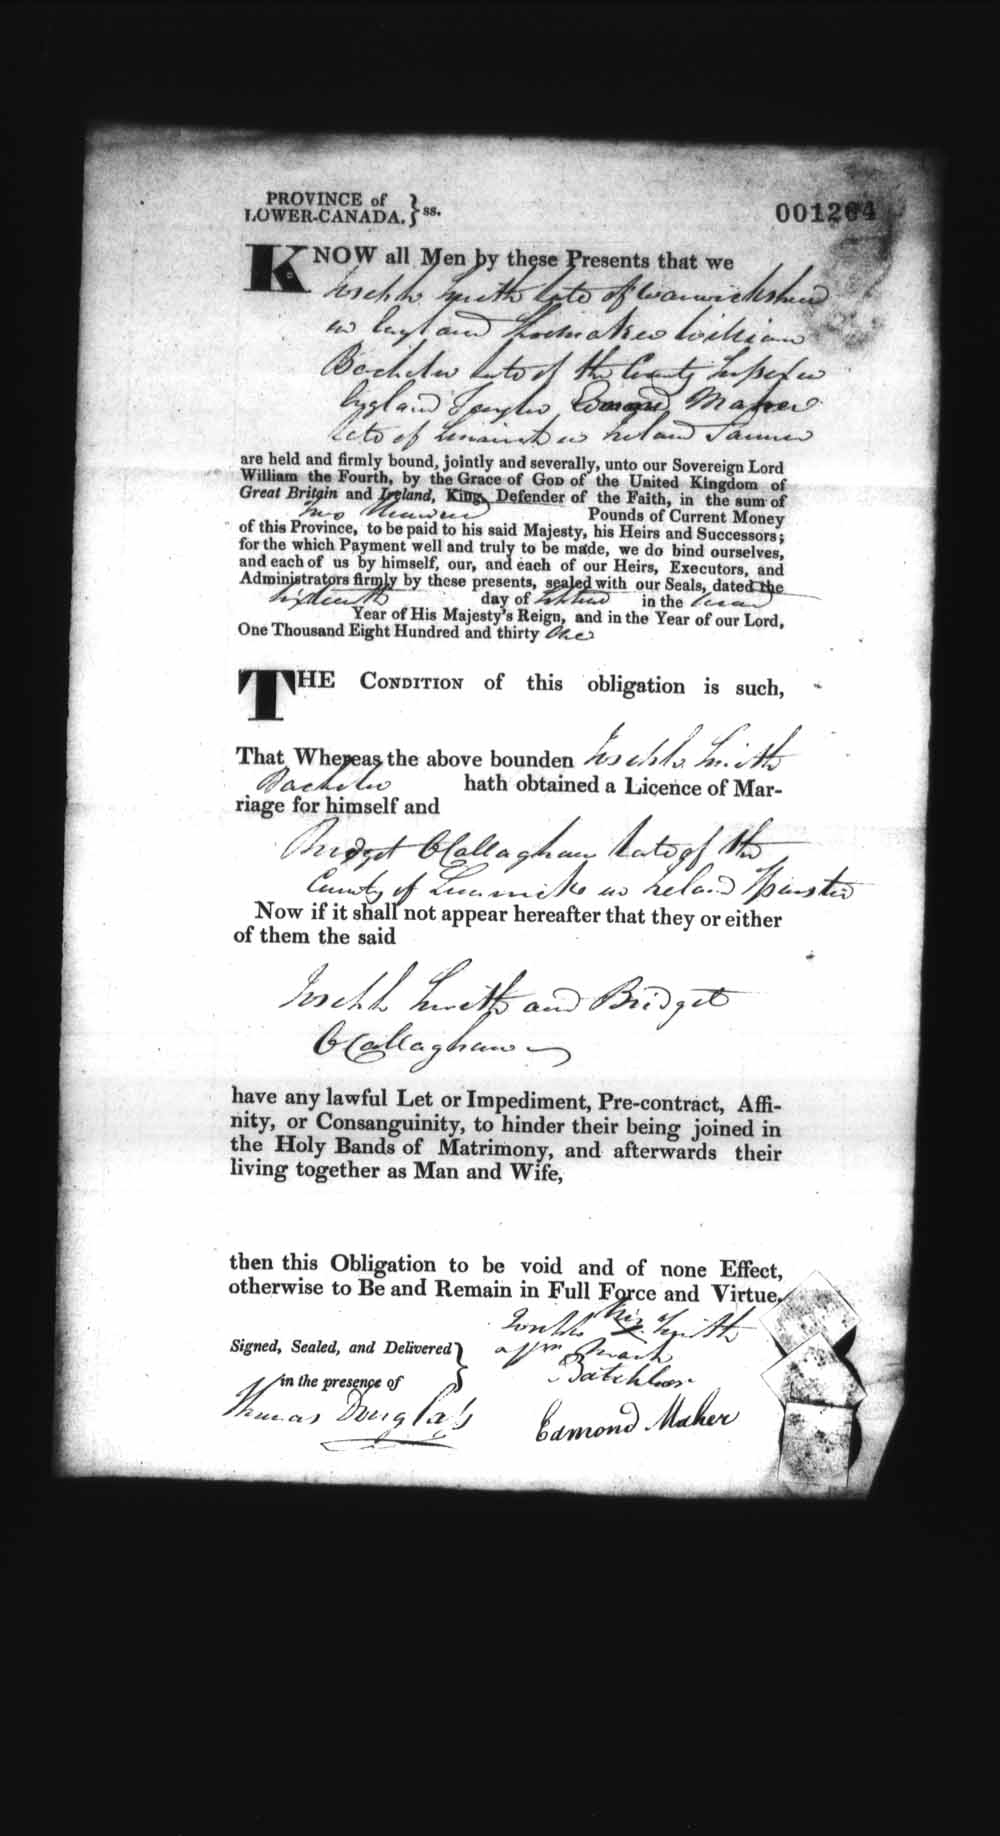 PROVINCE of
LOWER-CANADA. } ss.
001264
KNOW all Men by these Presents that we
Joseph Smith late of Warwickshire
in England Shoemaker William
Bachelor late of the County Sussex in
England Edmond Maher
late of Limerick in Ireland
are held and firmly bound, jointly and severally, unto our Sovereign Lord
William the Fourth, by the Grace of GOD of the United Kingdom of
Great Britain and Ireland, King, Defender of the Faith, in the sum of
Two Hundred Pounds of Current Money
of this Province, to be paid to his said Majesty, his Heirs and Successors;
for the which Payment well and truly to be made, we do bind ourselves,
and each of us by himself, our, and each of our Heirs, Executors, and
Administrators firmly by these presents, sealed with our Seals, dated the
sixteenth day of in the Second
Year of His Majesty's Reign, and in the Year of our Lord,
One Thousand Eight Hundred and thirty One
THE CONDITION of this obligation is such,
That Whereas the above bounden Joseph Smith
Bachelor hath obtained a Licence of Mar-
riage for himself and
Bridget OCallaghan late of the
County of Limerick in Ireland Spinster
Now if it shall not appear hereafter that they or either
of them the said
Joseph Smith and Bridget
OCallaghan
have any lawful Let or Impediment, Pre-contract, Affi-
nity, or Consanguinity, to hinder their being joined in
the Holy Bands of Matrimony, and afterwards their
living together as Man and Wife,
then this Obligation to be void and of none Effect,
otherwise to Be and Remain in Full Force and Virtue.
Joseph his X Smith
mark
Signed, Sealed, and Delivered }
Batchelor
in the presence of
Thomas Douglass
Edmond Maher